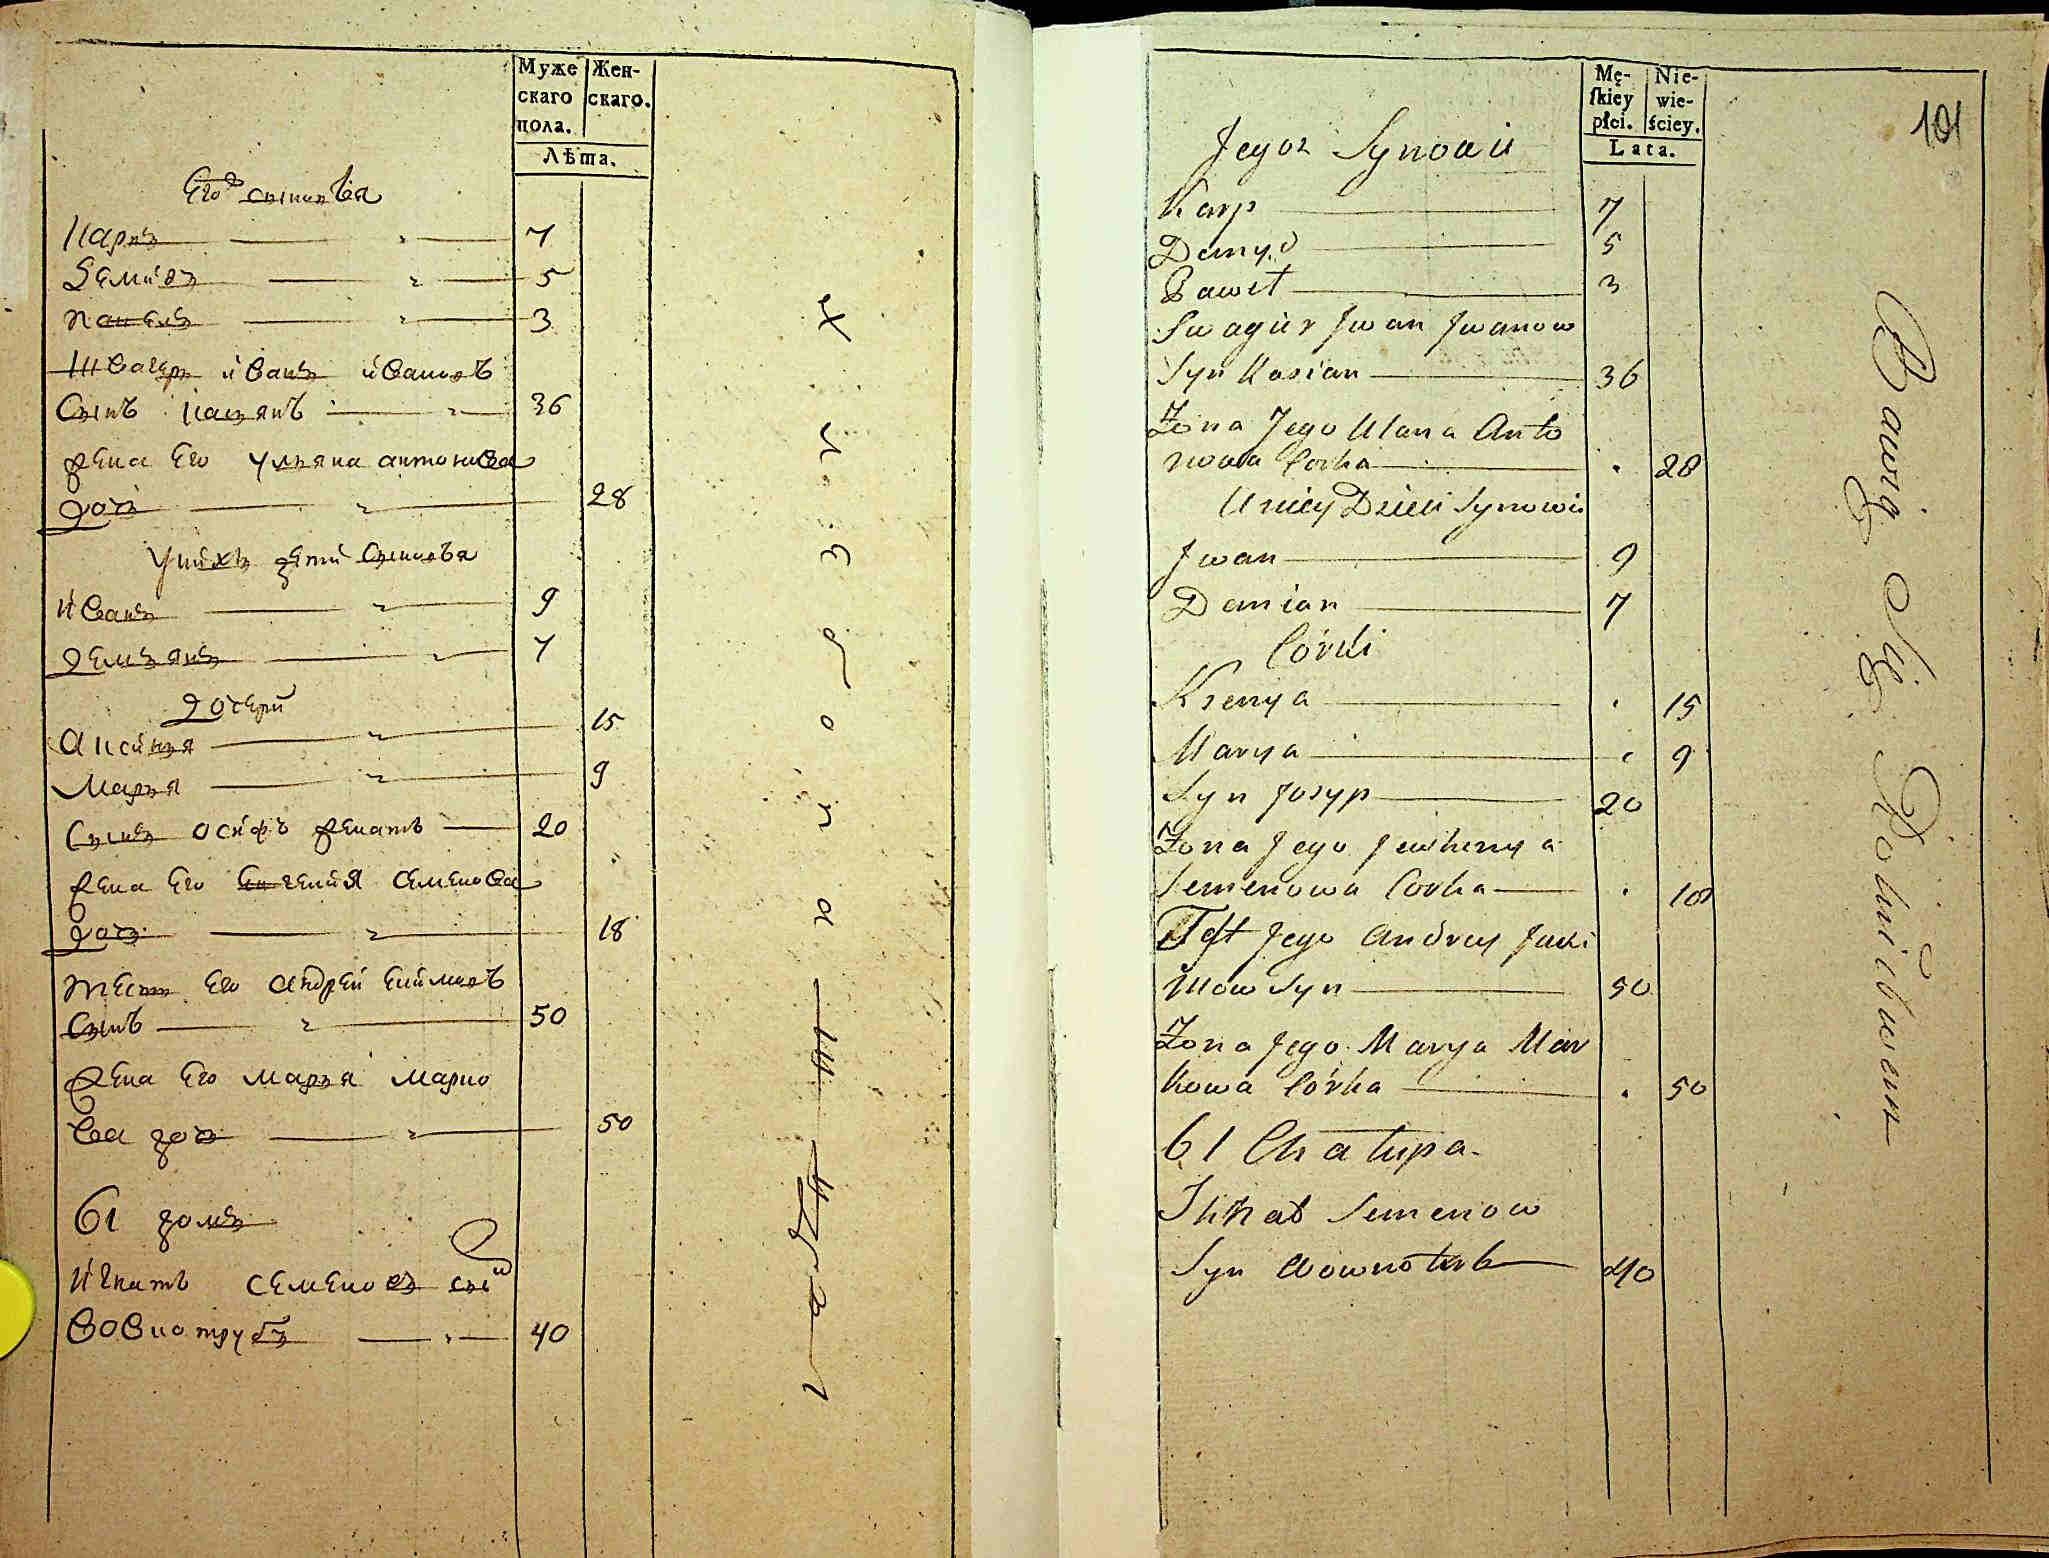 Муже
скаго
пола.
Жен-
скаго.
Лѣта.
Его сыновья
Карпъ 7
Демидъ 5
Павелъ 3
Швагеръ иванъ ивановъ
Сынъ касянъ 36
жена Его ульяна антонова
дочь 28
У нихъ дети Сыновья
иванъ 9
демьянъ 7
дочери
Аксинья 15
Марья 9
Сынъ осифъ женатъ 20
жена Его Евгения семенова
дочь 18
тесть Его андрей Екимовъ
Сынъ 50
жена Его марья марко
ва дочь 50
61 домъ
игнатъ семеновъ сынъ
вовнотрубъ 40
Mę-
ſkiey
płci.
Nie-
wie-
ściey.
Lata.
101
Jegor Synowie
Karp 7
Demyd 5
Paweł 3
Swagier Jwan Jwanow
Syn Kasian 36
Żona Jego Ulana Anto
nowa Corka 28
U niey Dzieci Synowie
Jwan 9
Damian 7
Córki
Ksenya 15
Marya 9
Syn Josyp 20
Żona Jego Jewhenya
Semenowa Corka 18
Test Jego Andrey Jaki
mow Syn 50
Żona Jego Marya Mar
kowa Córka 50
61 Chałupa.
Ihnat Semenow
Syn Wownotrub 40
Bawią Się Rolnictwem